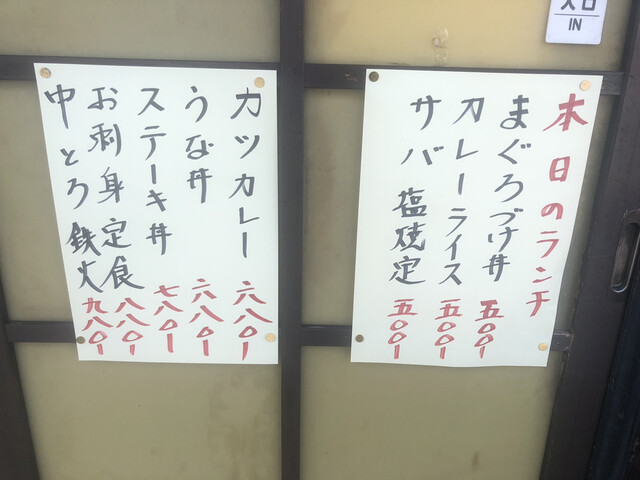 入口
IN
本日のランチ
まぐろづけ丼 五〇〇
カレーライス 五〇〇
サバ塩焼定 五〇〇
カツカレー 六八〇
うな丼 六八〇
ステーキ丼 七八〇
お刺身定食 八八〇
中とろ鉄火 九八〇